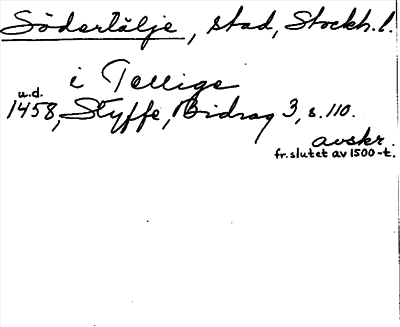 Södertälje, stad, Stockh. l.
i Tellige
u.d.
1458, Styffe, Bidrag 3, s. 110.
avskr.
fr. slutet av 1500-t.